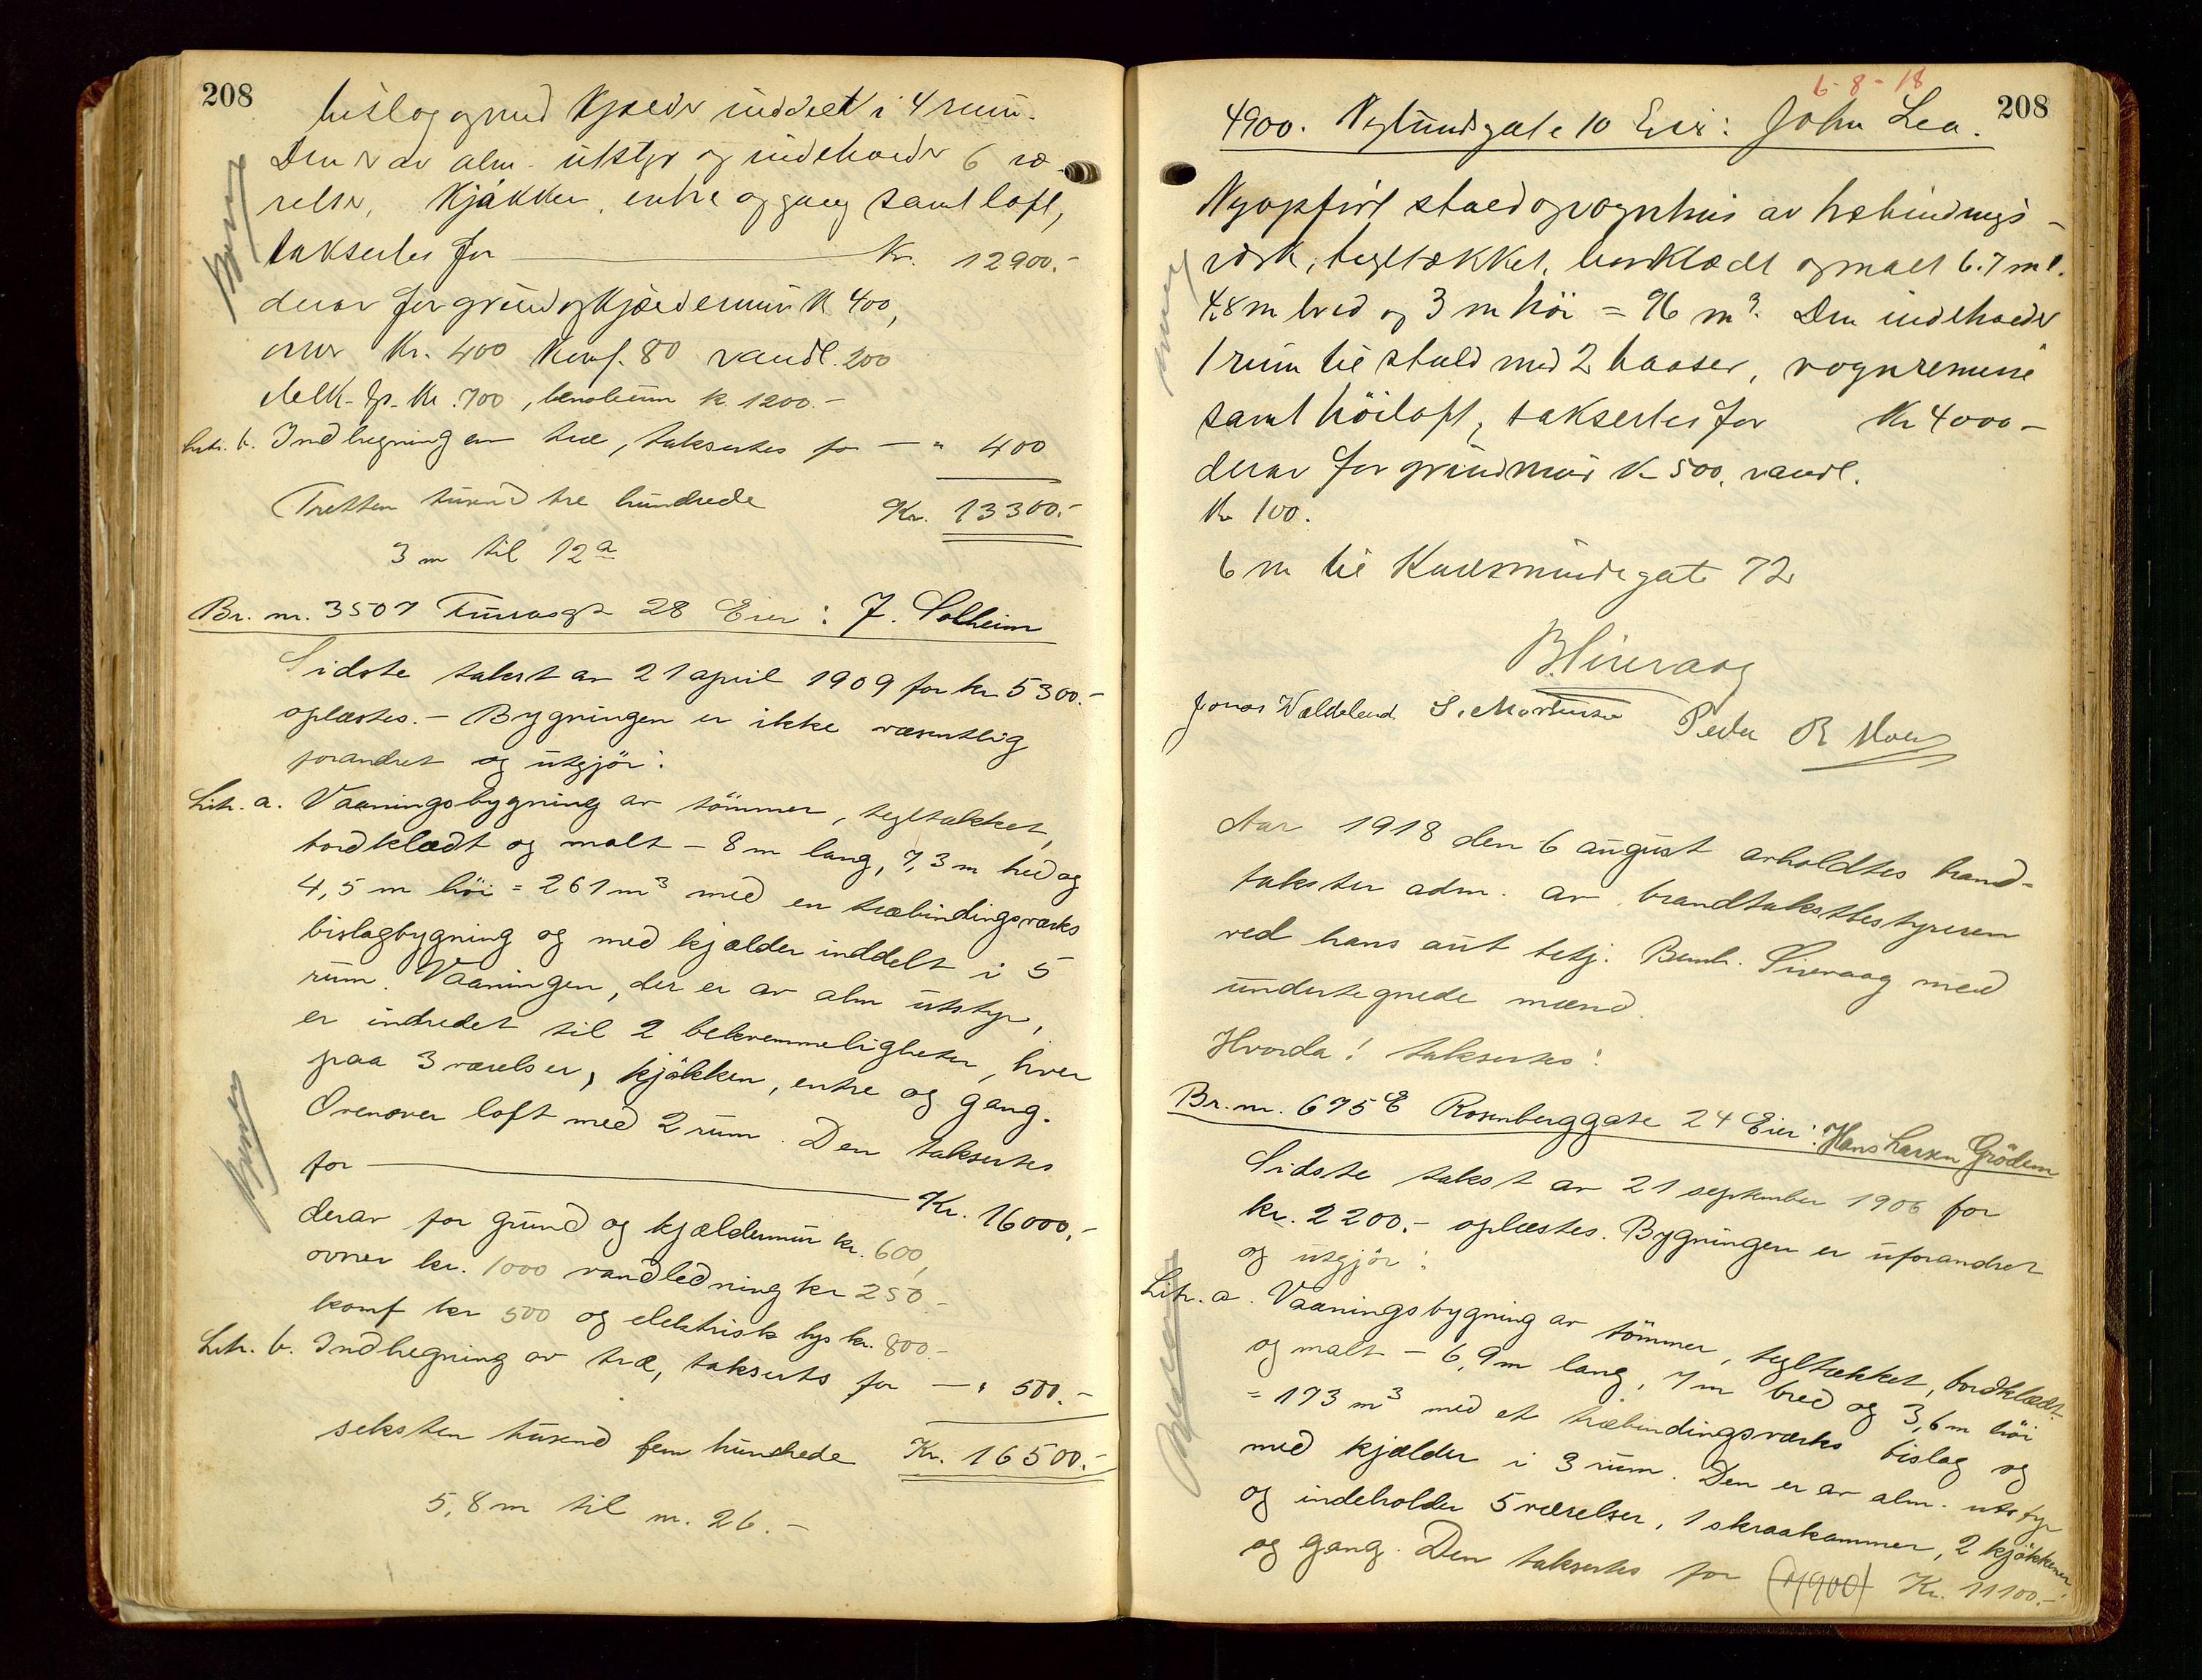 208
bislag og med kjelder inddelt i 4 rum.
Den er av alm. utstyr og indeholder 6 væ-
relser, kjøkken, entre og gang samt loft,
taksertes for Kr. 12900.-
derav for grund og kjældermur K 400,
ovner Kr. 400 Komf. 80 vandl. 200
elekt. lys Kr. 700,
Litr. b. Indhegning av træ, taksertes for — " 400
Tretten tusend tre hundrede Kr. 13300.-
3 m til 12a
Br. nr. 3507 28 Eier: J. Solheim
Sidste takst av 21 april 1909 for kr 5300.-
oplæstes. - Bygningen er ikke væsentlig
forandret og utgjör:
Litr. a. Vaaningsbygning av tömmer, tegltækket,
bordklædt og malt - 8 m lang, 7,3 m bred og
4,5 m höi = 261 m³ med en træbindingsværks
bislagbygning og med kjælder inddelt i 5
rum. Vaaningen, der er av alm utstyr,
er indredet til 2 bekvemmeligheter, hver
paa 3 værelser, kjökken, entre og gang.
Ovenover loft med 2 rum. Den taksertes
for — Kr. 16000.-
derav for grund og kjældermur kr. 600,
ovner kr. 1000 vandledning kr 250.-
komf kr 500 og elektrisk lys kr. 800.-
Litr. b. Indhegning av træ, takserts for — " 500.-
seksten tusend fem hundrede Kr. 16500.-
5,8 m til nr. 26.-
6-8-18
208
4900. Nylundsgate 10 Eier: John Lea.
Nyopfört stald og vognhus av træbindings-
værk, tegltækket, bordklædt og malt 6.7 m l.
4,8 m bred og 3 m höi = 96 m³. Den indeholder
1 rum til stald med 2 baaser, vognremise
samt höiloft, taksertes for Kr 4000-
derav for grundmur K 500, vandl.
Kr 100.
6 m til Karlsmindegate 72
B. Sireraag
Jonas Wældeland S. Mortensen Peder R
Aar 1918 den 6 august avholdtes brand-
takster adm. av brandtakstbestyreren
ved hans aut betj. Bernh. Sireraag med
undertegnede mænd.
Hvorda! taksertes:
Br. nr. 675E Rosenberggate 24 Eier: Hans Larsen Grödem
Sidste takst av 21 september 1906 for
kr. 2200.- oplæstes. Bygningen er uforandret
og utgjör:
Litr. a. Vaaningsbygning av tömmer, tegltækket, bordklædt
og malt - 6,9 m lang, 7 m bred og 3,6 m höi
= 173 m³ med et træbindingsværks bislag og
med kjælder i 3 rum. Den er av alm. utstyr
og indeholder 5 værelser, 1 skraakammer, 2 kjökkener
og gang. Den taksertes for (7900) Kr. 11100.-